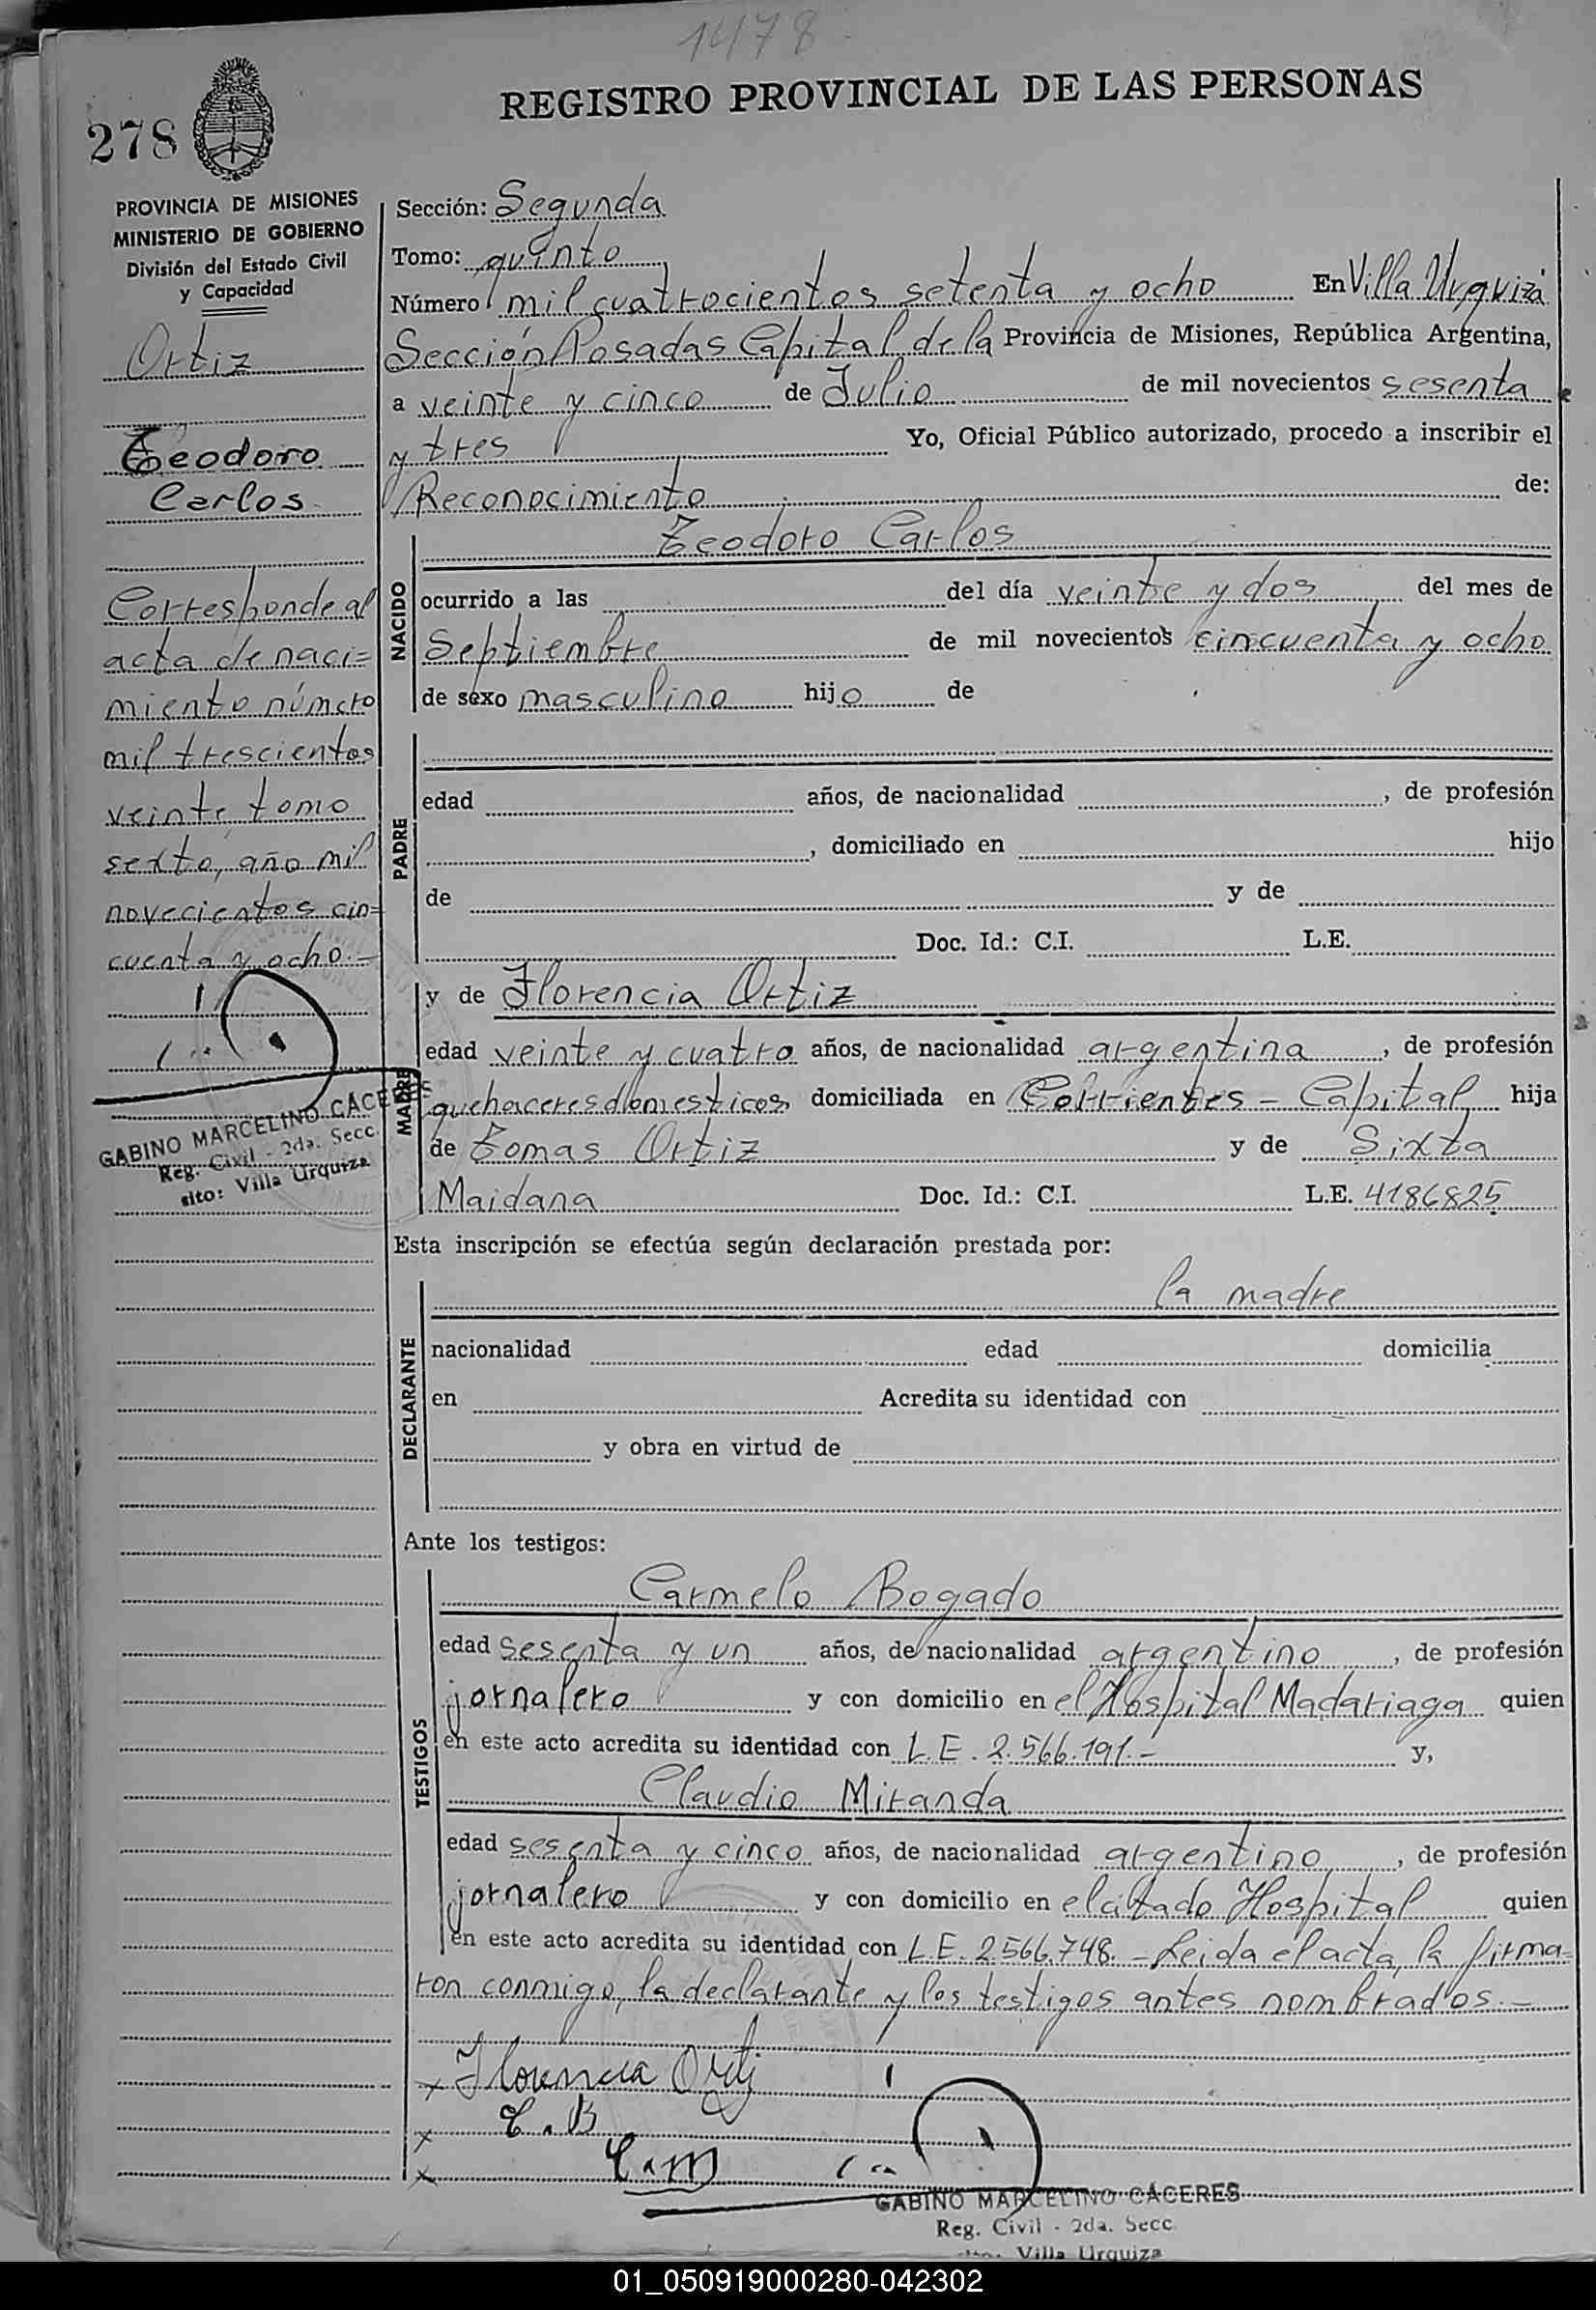 1478
278
REGISTRO PROVINCIAL DE LAS PERSONAS
PROVINCIA DE MISIONES
MINISTERIO DE GOBIERNO
División del Estado Civil
y Capacidad
Ortiz
Teodoro
Carlos
Corresponde al
acta de naci=
miento número
mil trescientos
veinte, tomo
sexto, año mil
novecientos cin=
cuenta y ocho.-
GABINO MARCELINO CÁCERES
Reg. Civil - 2da. Secc.
sito: Villa Urquiza
Sección: Segunda
Tomo: quinto
Número mil cuatrocientos setenta y ocho En Villa Urquiza
Sección Posadas Capital de la Provincia de Misiones, República Argentina,
a veinte y cinco de Julio de mil novecientos sesenta
y tres Yo, Oficial Público autorizado, procedo a inscribir el
Reconocimiento de:
NACIDO
Teodoro Carlos
ocurrido a las del día veinte y dos del mes de
Septiembre de mil novecientos cincuenta y ocho
de sexo masculino hijo de
PADRE
edad años, de nacionalidad , de profesión
, domiciliado en hijo
de y de
Doc. Id.: C.I. L.E.
MADRE
y de Florencia Ortiz
edad veinte y cuatro años, de nacionalidad argentina , de profesión
quehaceres domesticos, domiciliada en Corrientes - Capital, hija
de Tomas Ortiz y de Sixta
Maidana Doc. Id.: C.I. L.E. 4186825
Esta inscripción se efectúa según declaración prestada por:
DECLARANTE
la madre
nacionalidad edad domicilia
en Acredita su identidad con
y obra en virtud de
Ante los testigos:
TESTIGOS
Carmelo Bogado
edad sesenta y un años, de nacionalidad argentino , de profesión
jornalero y con domicilio en el Hospital Madariaga quien
en este acto acredita su identidad con L.E. 2.566.191.- y,
Claudio Miranda
edad sesenta y cinco años, de nacionalidad argentino , de profesión
jornalero y con domicilio en el citado Hospital quien
en este acto acredita su identidad con L.E. 2.566.748.- Leida el acta, la firma=
ron conmigo, la declarante y los testigos antes nombrados.-
x Florencia Ortiz
x C.B
x C.M
GABINO MARCELINO CÁCERES
Reg. Civil - 2da. Secc
Villa Urquiza
01_050919000280-042302